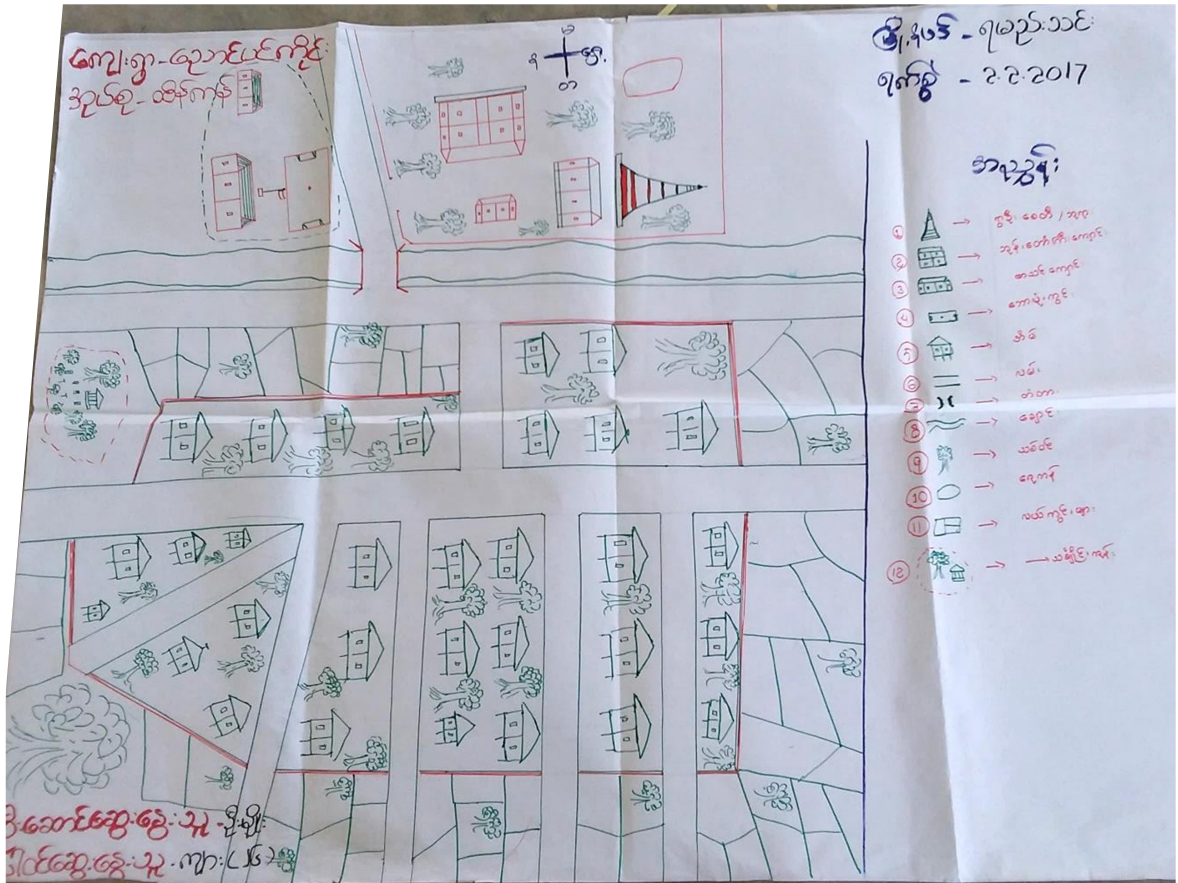 ကျေးရွာ-ညောင်ပင်ကိုင်း
အုပ်စု-ထိန်ကုန်း
မြို့နယ် - ရမည်းသင်း
ရက်စွဲ - ၃.၃.2017
အညွှန်း
① → စေတီ / ဘုရား
② → ဘုန်းတော်ကြီးကျောင်း
③ → စာသင်ကျောင်း
④ → ဘောလုံးကွင်း
၅ → အိမ်
⑥ → လမ်း
⑦ → တံတား
⑧ → ချောင်း
⑨ → သစ်ပင်
⑩ → ရေကန်
⑪ → လယ်ကွင်းများ
⑫ → သင်္ချိုင်းကုန်း
ဦးဆောင်ဆွေးနွေးသူ-စိုးမျိုး
ပါဝင်ဆွေးနွေးသူ-ကျား